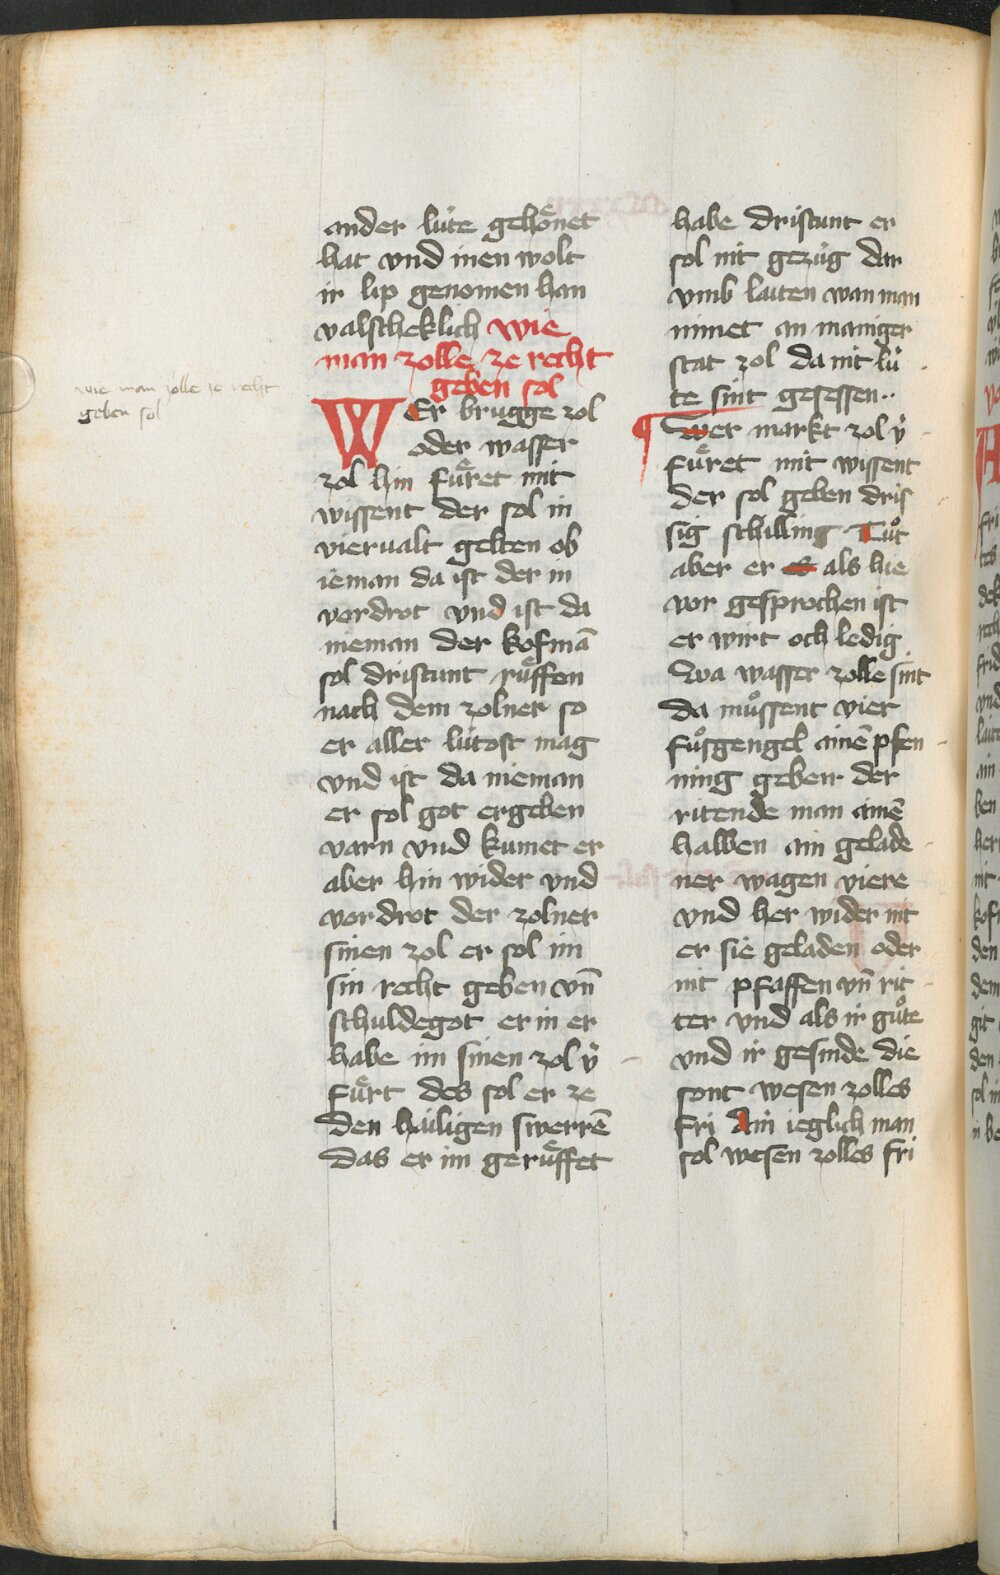 wie man zolle ze recht
geben sol
ander lúte gehoͤnet
hat vnd inen wolt
ir lip genomen han
valscheklich wie
man zolle ze recht
geben sol
WEr brugge zol
oder wasser
zol hin fuͤret mit
wissent der sol in
viervalt gelten ob
ieman da ist der in
vordrot vnd ist da
nieman der kofmā
sol dristunt ruͤffen
nach dem zolner so
er aller lútost mag
vnd ist da nieman
er sol got ergeben
varn vnd kumet er
aber hin wider vnd
vordrot der zolner
sinen zol er sol im
sin recht geben vn̄
schuldegot er in er
habe im sinen zol v̓
fuͤrt des sol er ze
den hailigen swerrē
das er im geruͤffet
habe dristunt er
sol nit gezúg dar
vmb laiten wan man
nimet an maniger
stat zol da nit lú
te sint gesessen..
¶ Wer markt zol v̓
fuͤret mit wissent
der sol geben dris
sig schilling Tuͦt
aber er es als hie
vor gesprochen ist
er wirt och ledig
Wa wasser zolle sint
da muͦssent vier
fuͦsgengel ainē pfen
ning geben der
ritende man ainē
halben ain gelade
ner wagen viere
vnd her wider nit
er sie geladen oder
nit pfaffen vn̄ rit
ter vnd als ir guͦte
vnd ir gesinde die
sont wesen zolles
fri Ain ieglich man
sol wesen zolles fri